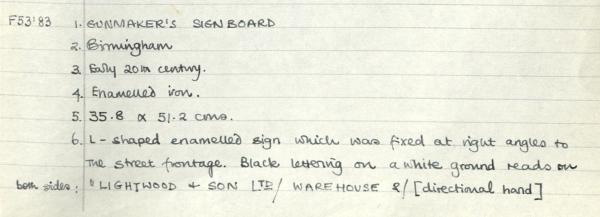 F53'83 1. GUNMAKER'S SIGNBOARD
2. Birmingham
3. Early 20th century.
4. Enamelled iron.
5. 35.8 x 51.2 cms.
6. L-shaped enamelled sign which was fixed at right angles to
the street frontage. Black lettering on a white ground reads on
both sides: "LIGHTWOOD & SON LTD/ WAREHOUSE &/ [directional hand]